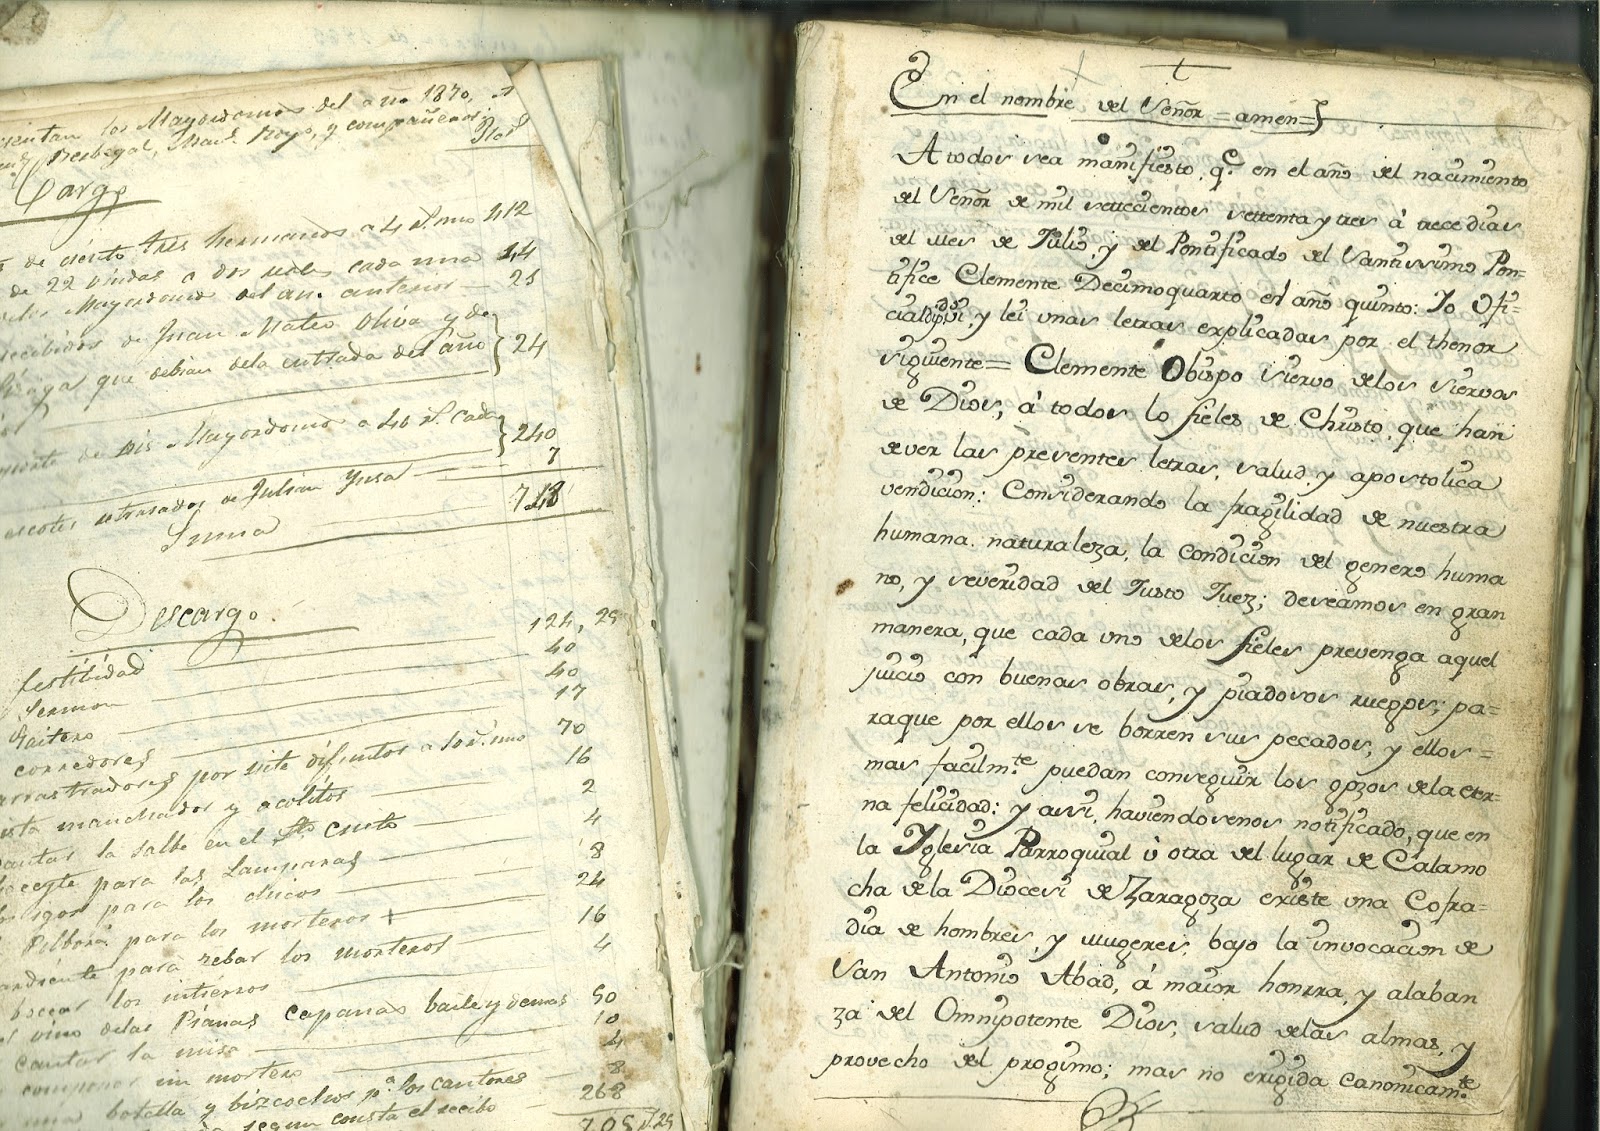 sentan los Mayordomos del año 1870,
Berbegal, Man.l Royo, y compañeros:
Rs.
Cargo
de ciento tres hermanos a 4 r.s uno 412
de 22 viudas a dos reales cada una 44
Mayordomos del an. anterior 25
recibidos de Juan Mateo Oliva y de
que debian dela entrada del año 24
de seis Mayordomos a 40 r.s cada 240
escotes retrasados de Julian Yusa 7
Suma
Descargo.
festividad 124, 25
Sermon 40
Gaitero 40
corredores 17
arrastradores por siete difuntos a 10 r.s uno 70
manchador y acolitos 16
cantar la salbe en el S.to Cristo 2
aceyte para las Lamparas 4
igos para los chicos 8
Polbora para los morteros 24
para zebar los morteros 16
bocear los intierros 4
vino delas Pianas capanas baile y demas 50
cantar la misa 10
componer un mortero 4
una botella y bizcochos p.a los cantores 8
segun consta el recibo 268
705 r.s 25
En el nombre del Señor = amen =
A todos sea manifiesto, q.e en el año del nacimiento
del Señor de mil settecientos settenta y tres á trece dias
del mes de Julio, y del Pontificado del Santissimo Pon=
tifice Clemente Decimoquarto en el año quinto: Yo Ofi=
cial vi, y lei unas letras explicadas por el thenor
siguiente = Clemente Obispo siervo delos siervos
de Dios, á todos lo fieles de Christo, que han
de ver las presentes letras, salud, y apostolica
vendicion: Considerando la fragilidad de nuestra
humana naturaleza, la condicion del genero huma
no, y severidad del Justo Juez; deseamos en gran
manera, que cada uno delos fieles prevenga aquel
juicio con buenas obras, y piadosos ruegos; pa=
raque por ellos se borren sus pecados, y ellos =
mas facilm.te puedan conseguir los gozos dela eter-
na felicidad: y assi, haviendosenos notificado, que en
la Yglesia Parroquial ù otra del lugar de Calamo
cha de la Diocesi de Zaragoza existe una Cofra=
dia de hombres, y mugeres, bajo la invocacion de
San Antonio Abad, á maior honrra, y alaban
za del Omnipotente Dios, salud delas almas, y
provecho del progimo; mas no erigida canonicam.te